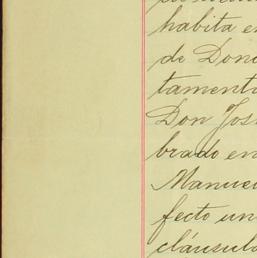 habita en
de Dona
tamento
Don Jos
brado en
Manuel
fecto un
cláusula